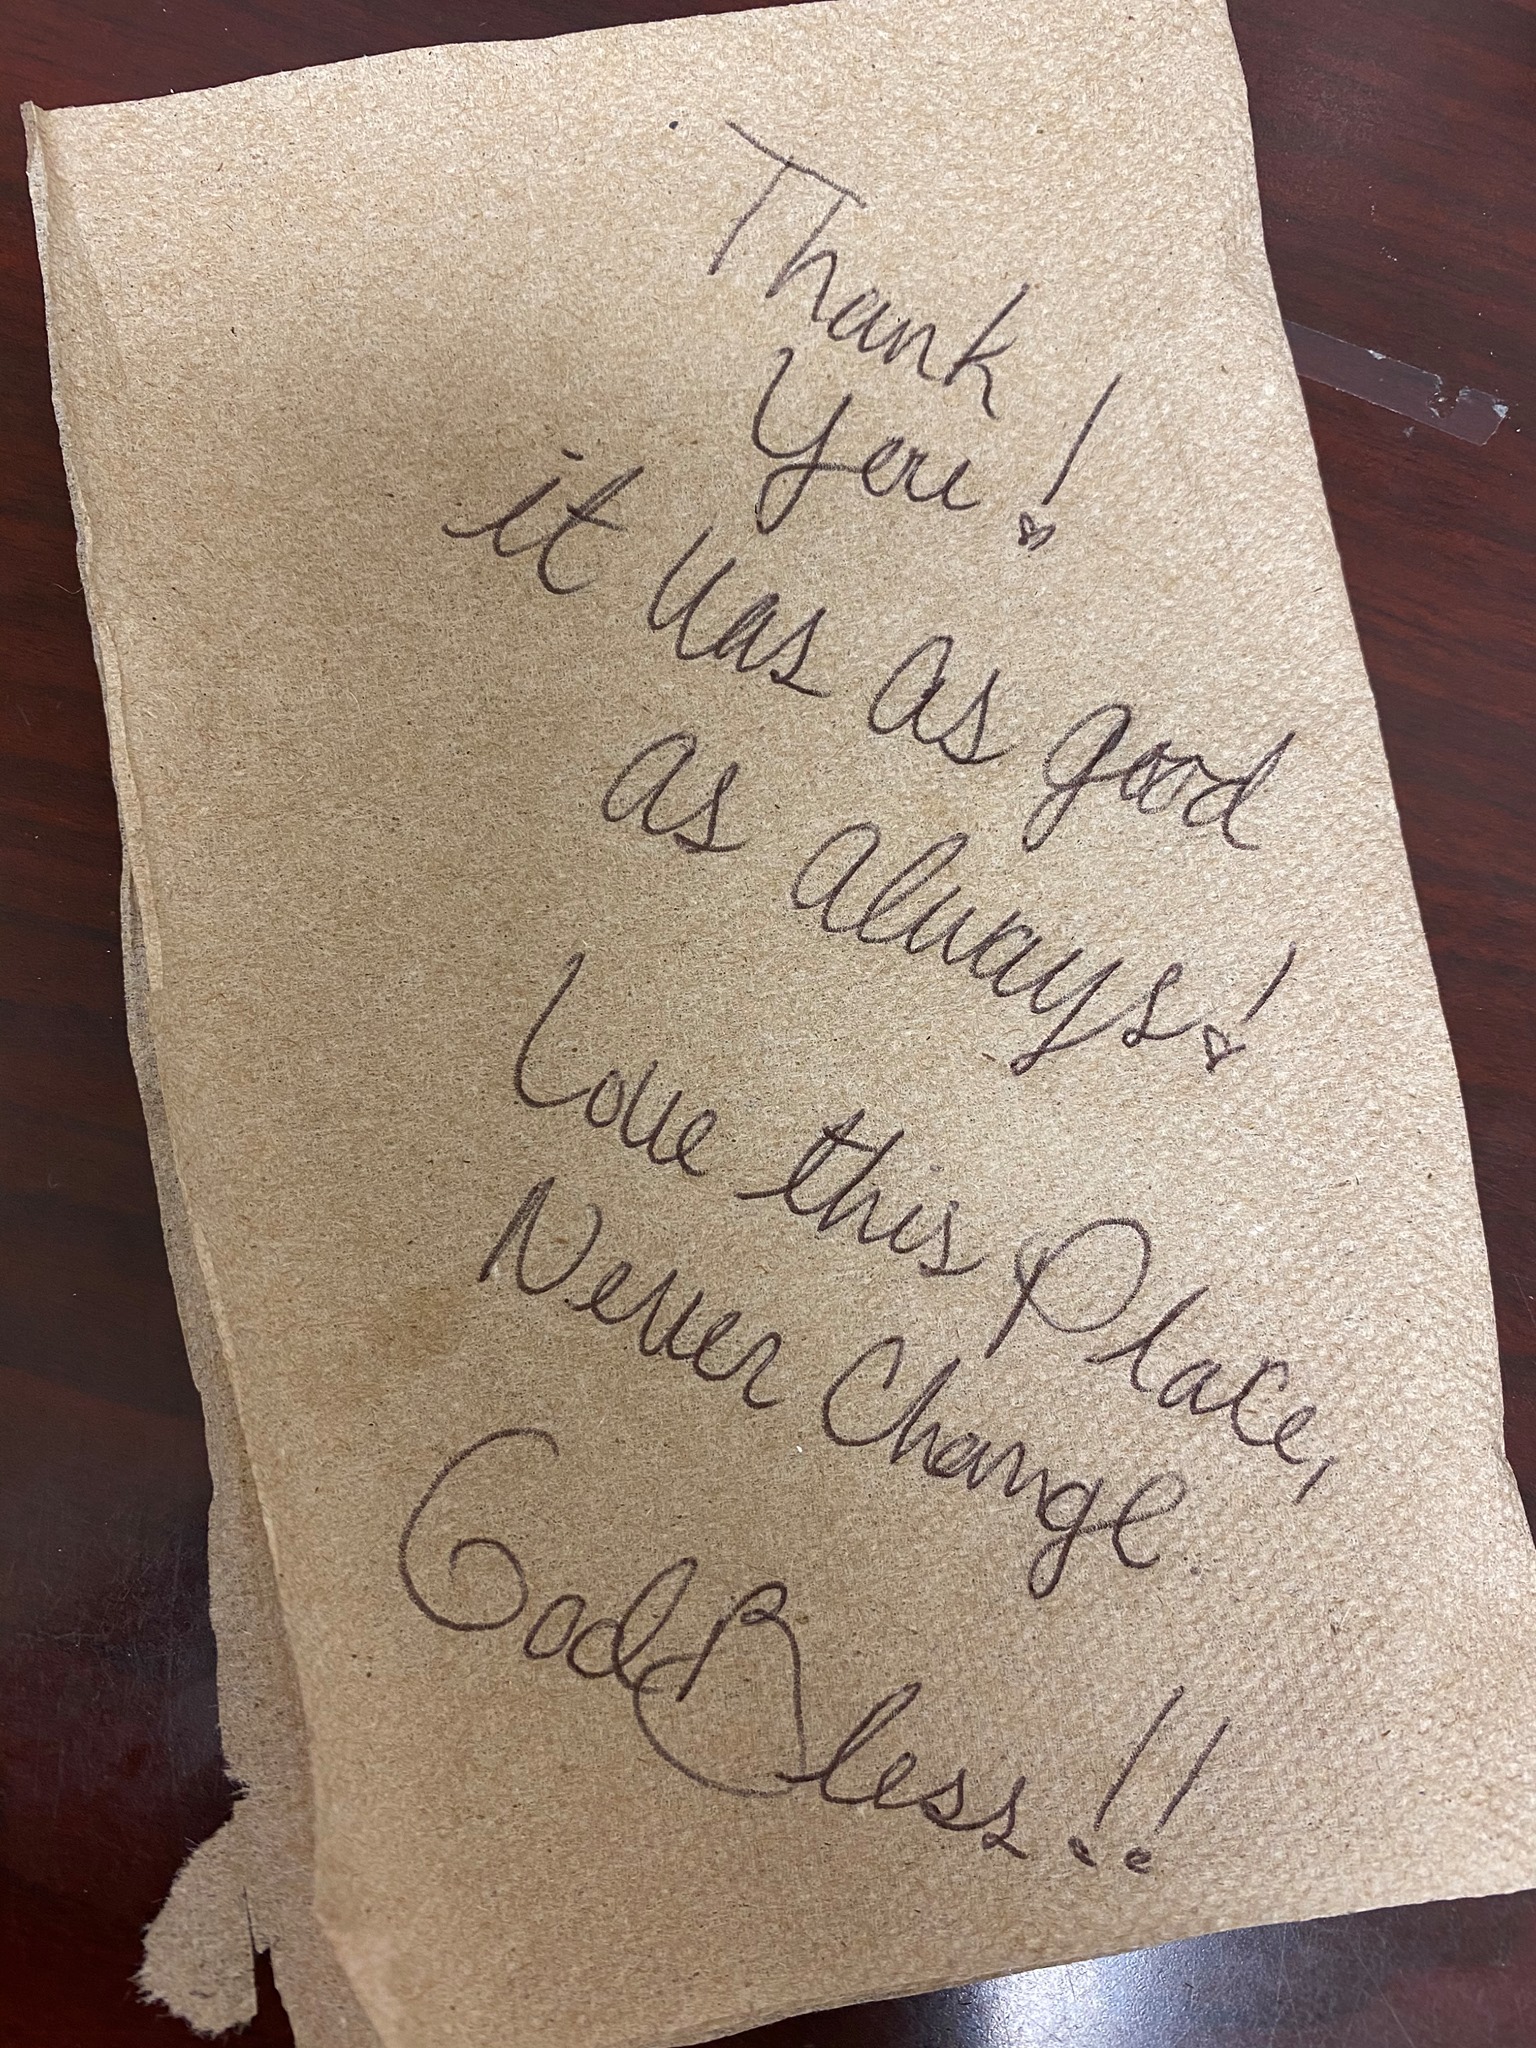 Thank
You!
it was as good
as always!
Love this Place,
Never Change.
God Bless!!